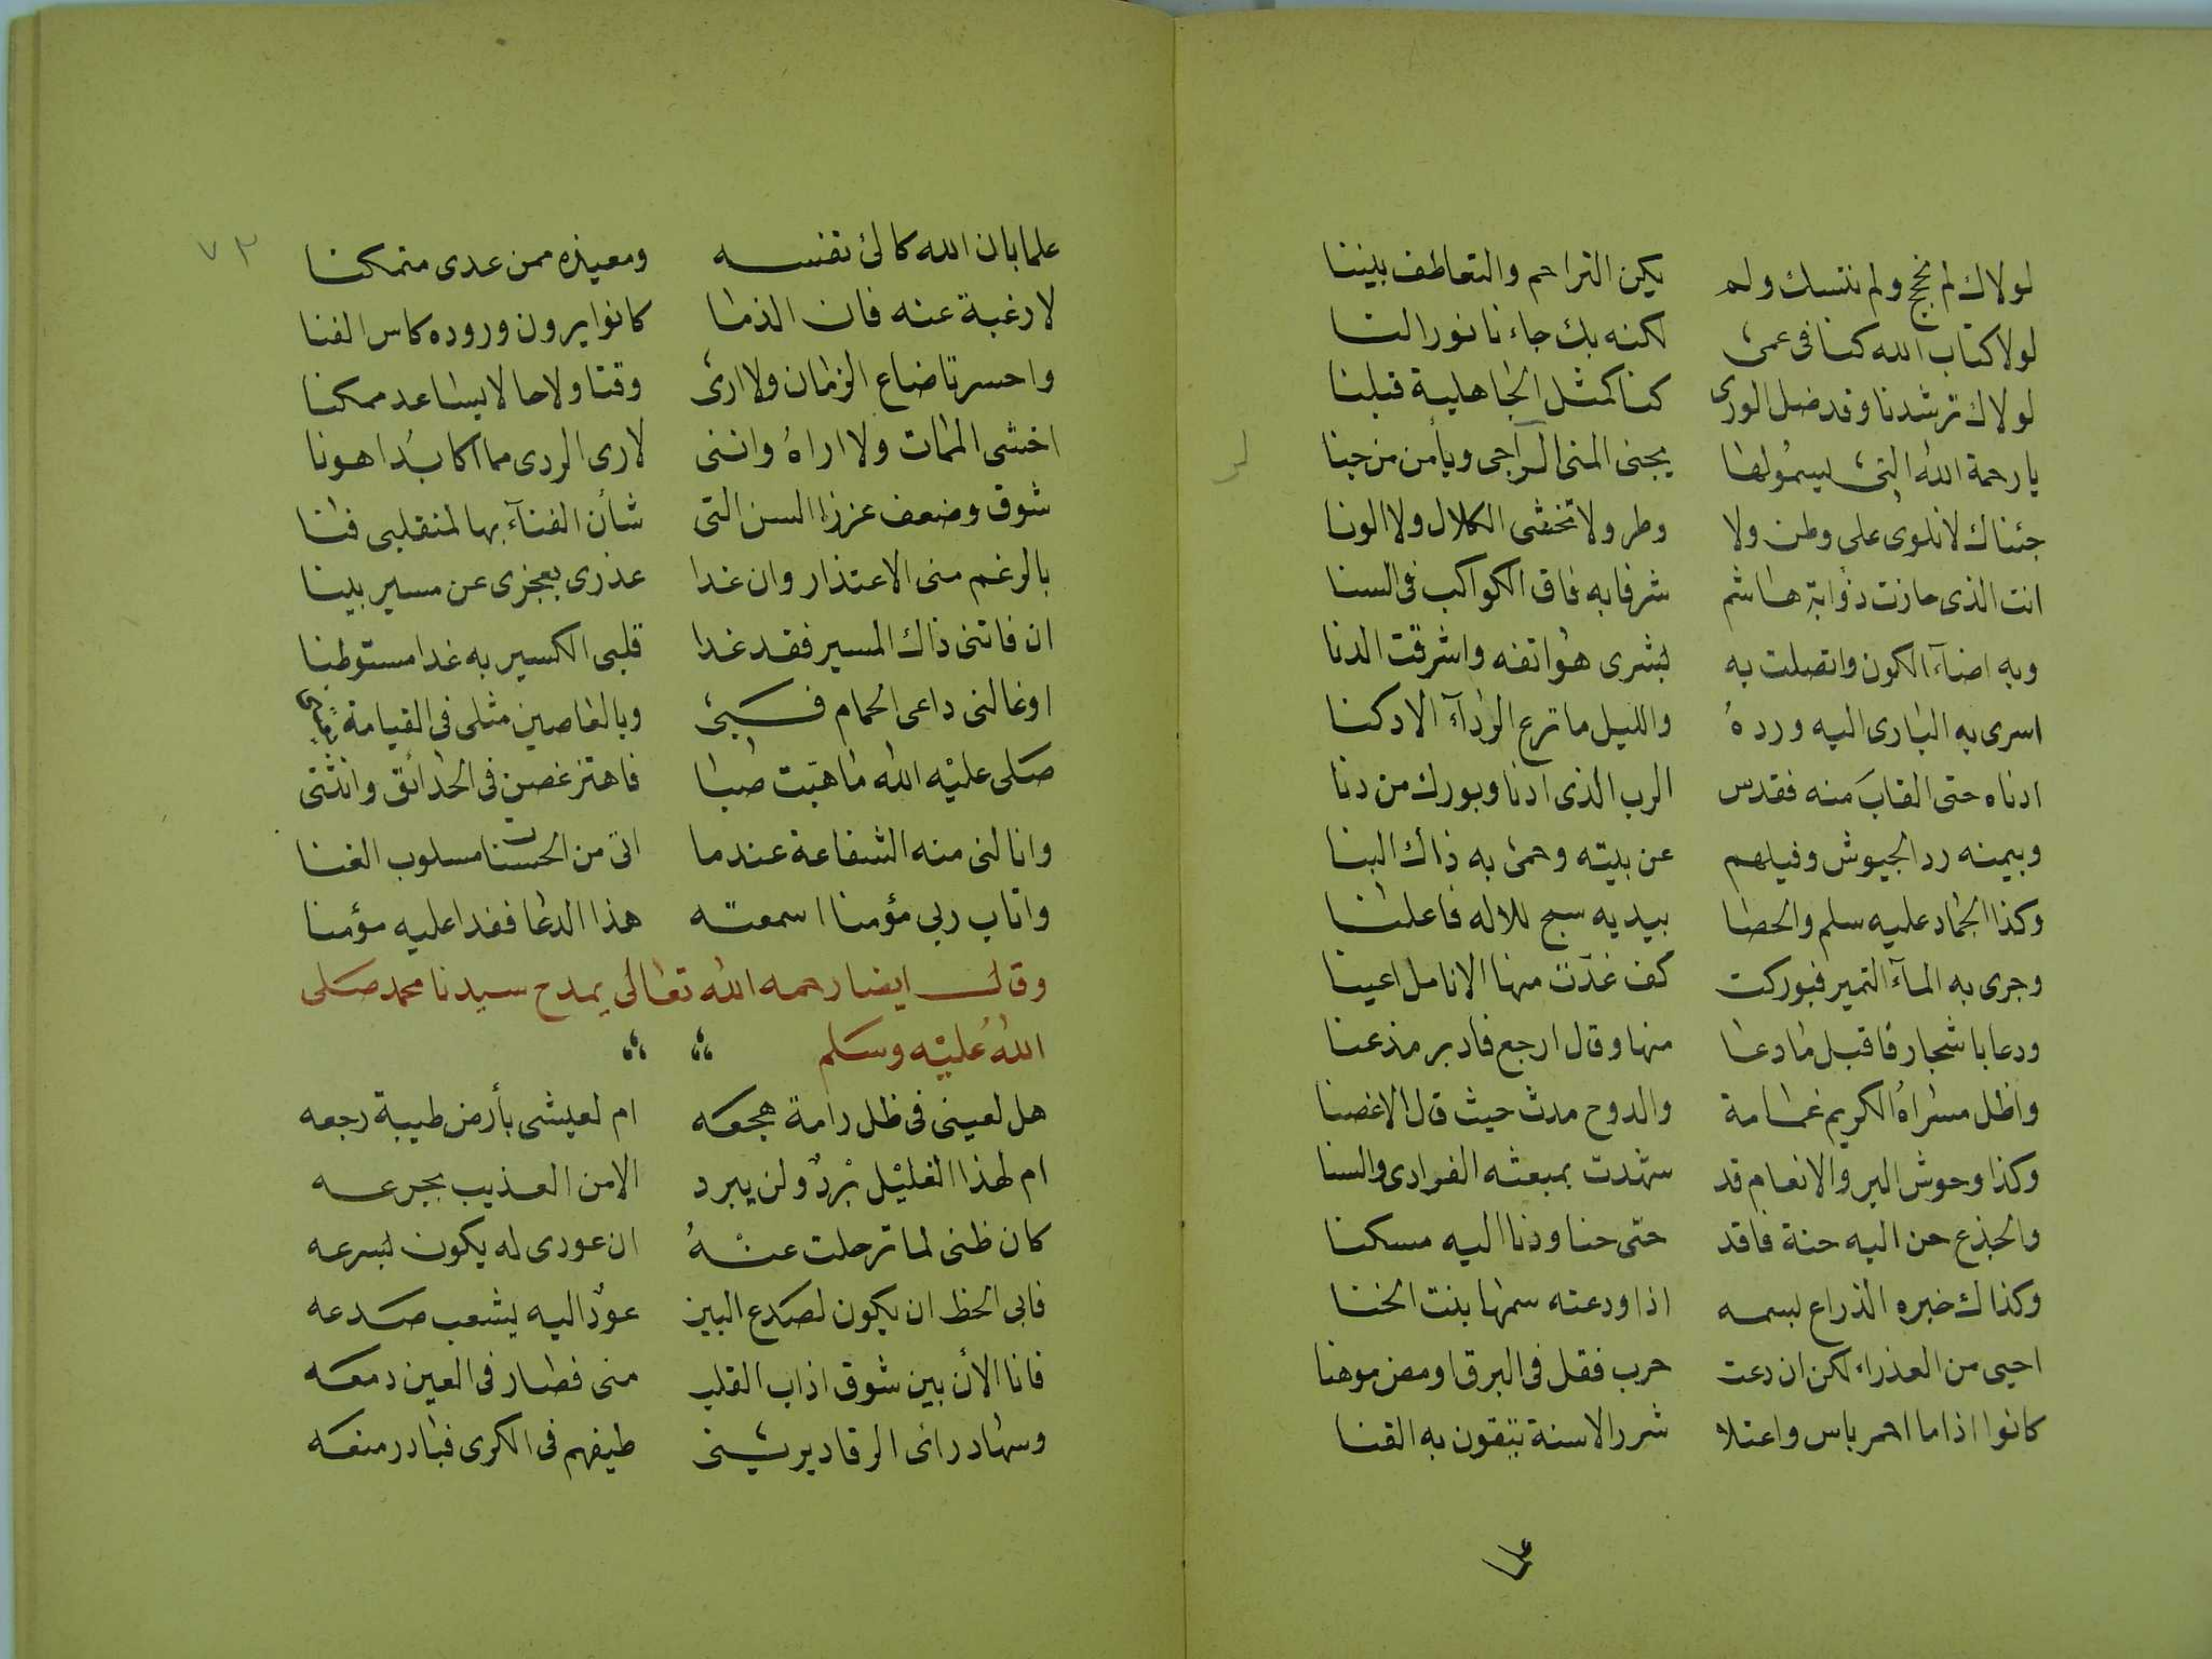 لولاك لم نحج ولم ننسك ولم يكن التراحم والتعاطف بيننا
لولا كتاب الله كنا فى عمى لكنه بك جاءنا نور النا
لولاك ترشدنا وقد ضل الورى كنا كمثل الجاهلية قبلنا
يا رحمة الله التى يجنى المنى الراجى ويأمن من جنا
جئناك لا نلوى على وطن ولا وطر ولا تخشى الكلال ولا الونا
انت الذى حازت ذؤابة هاشم شرفا به فاق الكواكب فى السنا
وبه اضآء الكون واتصلت به بشرى هواتفه واشرقت الدنا
اسرى به البارى اليه ورده والليل ما ترع الردآء الادكنا
ادناه حتى القاب منه فقدس الرب الذى ادنا وبورك من دنا
وبيمنه رد الجيوش وفيلهم عن بيته وحمى به ذاك البنا
وكذا الجماد عليه سلم والحصا بيديه سبح للاله فاعلنا
وجرى به المآء النمير فبوركت كف غدت منها الانامل اعينا
ودعا باشجار فاقبل ما دعا منها وقال ارجع فادبر مذعنا
واظل مسراه الكريم غمامة والدوح مدت حيث قال الاغصنا
وكذا وحوش البر والانعام قد شهدت بمبعثه الفرادى والسنا
والجذع حن اليه حنة فاقد حتى حنا ودنا اليه مسكنا
وكذاك خبره الذراع بسمه اذا ودعته سمها بنت الخنا
احيى من العذراء لكن ان دعت حرب فقل فى البرق اومض موهنا
كانوا اذا ما احمر باس واعتلا شرر الاسنة يتقون به القنا
علما
٧٢
علما بان الله كالئ نفسه ومعيذه ممن عدى متمكنا
لا رغبة عنه فان الذما كانوا يرون وروده كاس الفنا
واحسرتا ضاع الزمان ولا ارى وقتا ولا حالا يساعد ممكنا
اخشى الممات ولا اراه واننى لارى الردى مما اكابد اهونا
شوق وضعف عززا السن التى شأن الفنآء بها لمنقلبى فنا
بالرغم منى الاعتذار وان غدا عذرى بعجزى عن مسير بينا
ان فاتنى ذاك المسير فقد غدا قلبى الكسير به غدا مستوطنا
او غالنى داعى الحمام فسبى وبالعاصين مثلى فى القيامة
صلى عليه الله ما هبت صبا فاهتز غصن فى الحدائق وانثنى
وانالنى منه الشفاعة عندما اتى من الحسنات مسلوب الغنا
واثاب ربى مؤمنا اسمعته هذا الدعا فغدا عليه مؤمنا
وقال ايضا رحمه الله تعالى يمدح سيدنا محمد صلى
الله عليه وسلم
هل لعينى فى ظل رامة هجعه ام لعيشى بأرض طيبة رجعه
ام لهذا الغليل برد ولن يبرد الا من العذيب بجرعه
كان ظنى لما ترحلت عنه ان عودى له يكون بسرعه
فابى الحظ ان يكون لصدع البين عود اليه يشعب صدعه
فانا الأن بين شوق اذاب القلب منى فصار فى العين دمعه
وسهاد رائى الرقاد يرينى طيفهم فى الكرى فبادر منعه